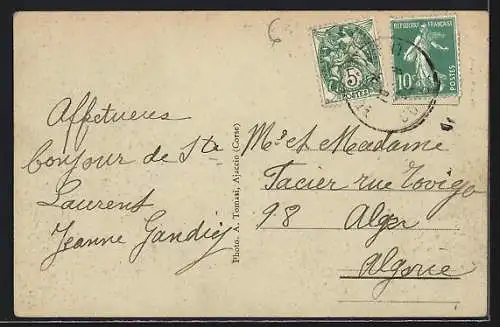 Affectueux
bonjour de Ste
Laurent
Jeanne
Photo. A. Tomasi, Ajaccio (Corse)
5c
POSTES
REPUBLIQUE FRANÇAISE
10
POSTES
Mr et Madame
Tacier rue Rovigo
98 Alger
Algérie